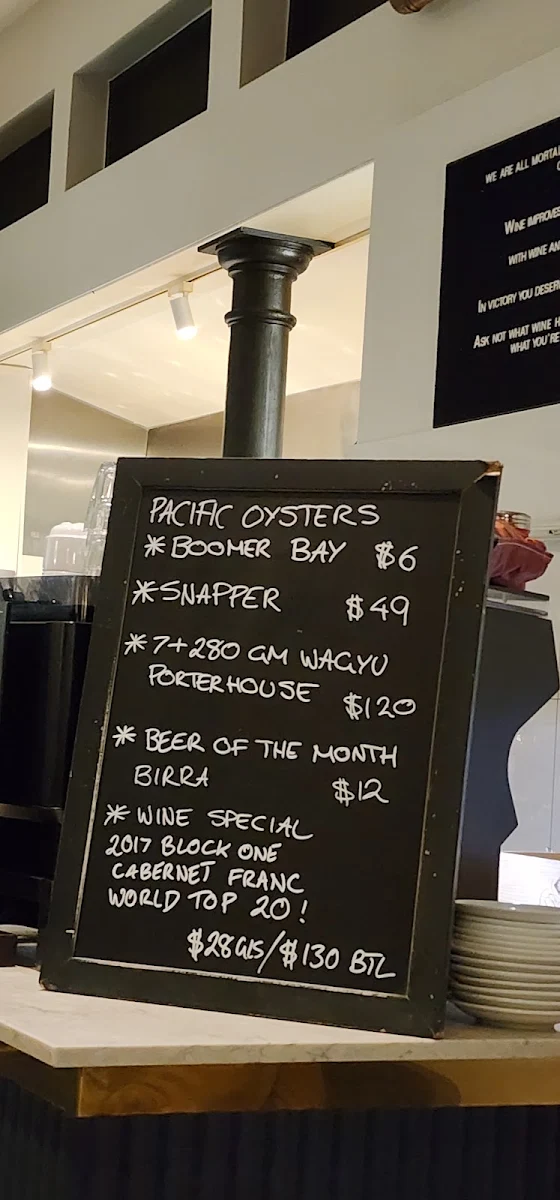 WE ARE ALL MORTAL
WINE IMPROVES
WITH WINE AN
IN VICTORY YOU DESER
ASK NOT WHAT WINE H
WHAT YOU'RE
PACIFIC OYSTERS
* BOOMER BAY $6
* SNAPPER $49
* 7+280 GM WAGYU
PORTERHOUSE $120
* BEER OF THE MONTH
BIRRA $12
* WINE SPECIAL
2017 BLOCK ONE
CABERNET FRANC
WORLD TOP 20!
$28GLS/$130 BTL